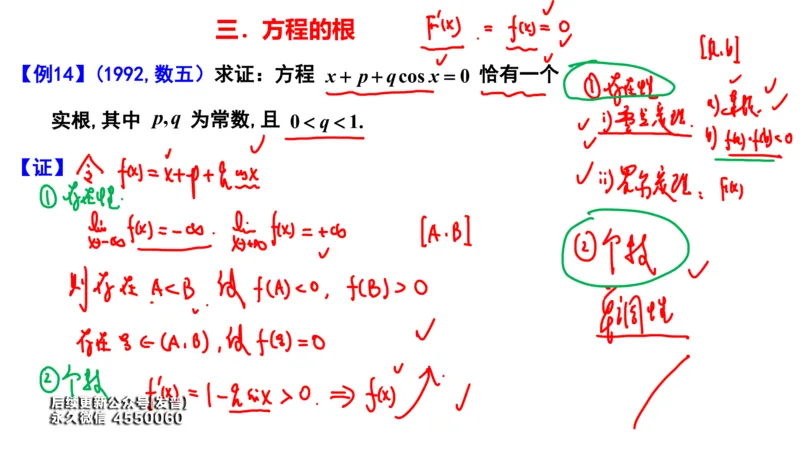 三．方程的根
F'(x) = f(x) = 0
【例14】(1992,数五）求证：方程 x + p + q cos x = 0 恰有一个
实根,其中 p,q 为常数,且 0 < q < 1.
[a,b]
① 存在性
i) 零点定理
a) 连续
b) f(a)·f(b)<0
ii) 罗尔定理: F(x)
② 个数
单调性
【证】令 f(x) = x+p+q cos x
① 存在性.
lim x→-∞ f(x) = -∞. lim x→+∞ f(x) = +∞ [A.B]
则存在 A<B 使 f(A)<0, f(B)>0
存在 ξ∈(A.B), 使 f(ξ)=0
② 个数 f'(x) = 1-q sin x > 0. ⇒ f(x)
后续更新公众号[发普]
永久微信 4550060